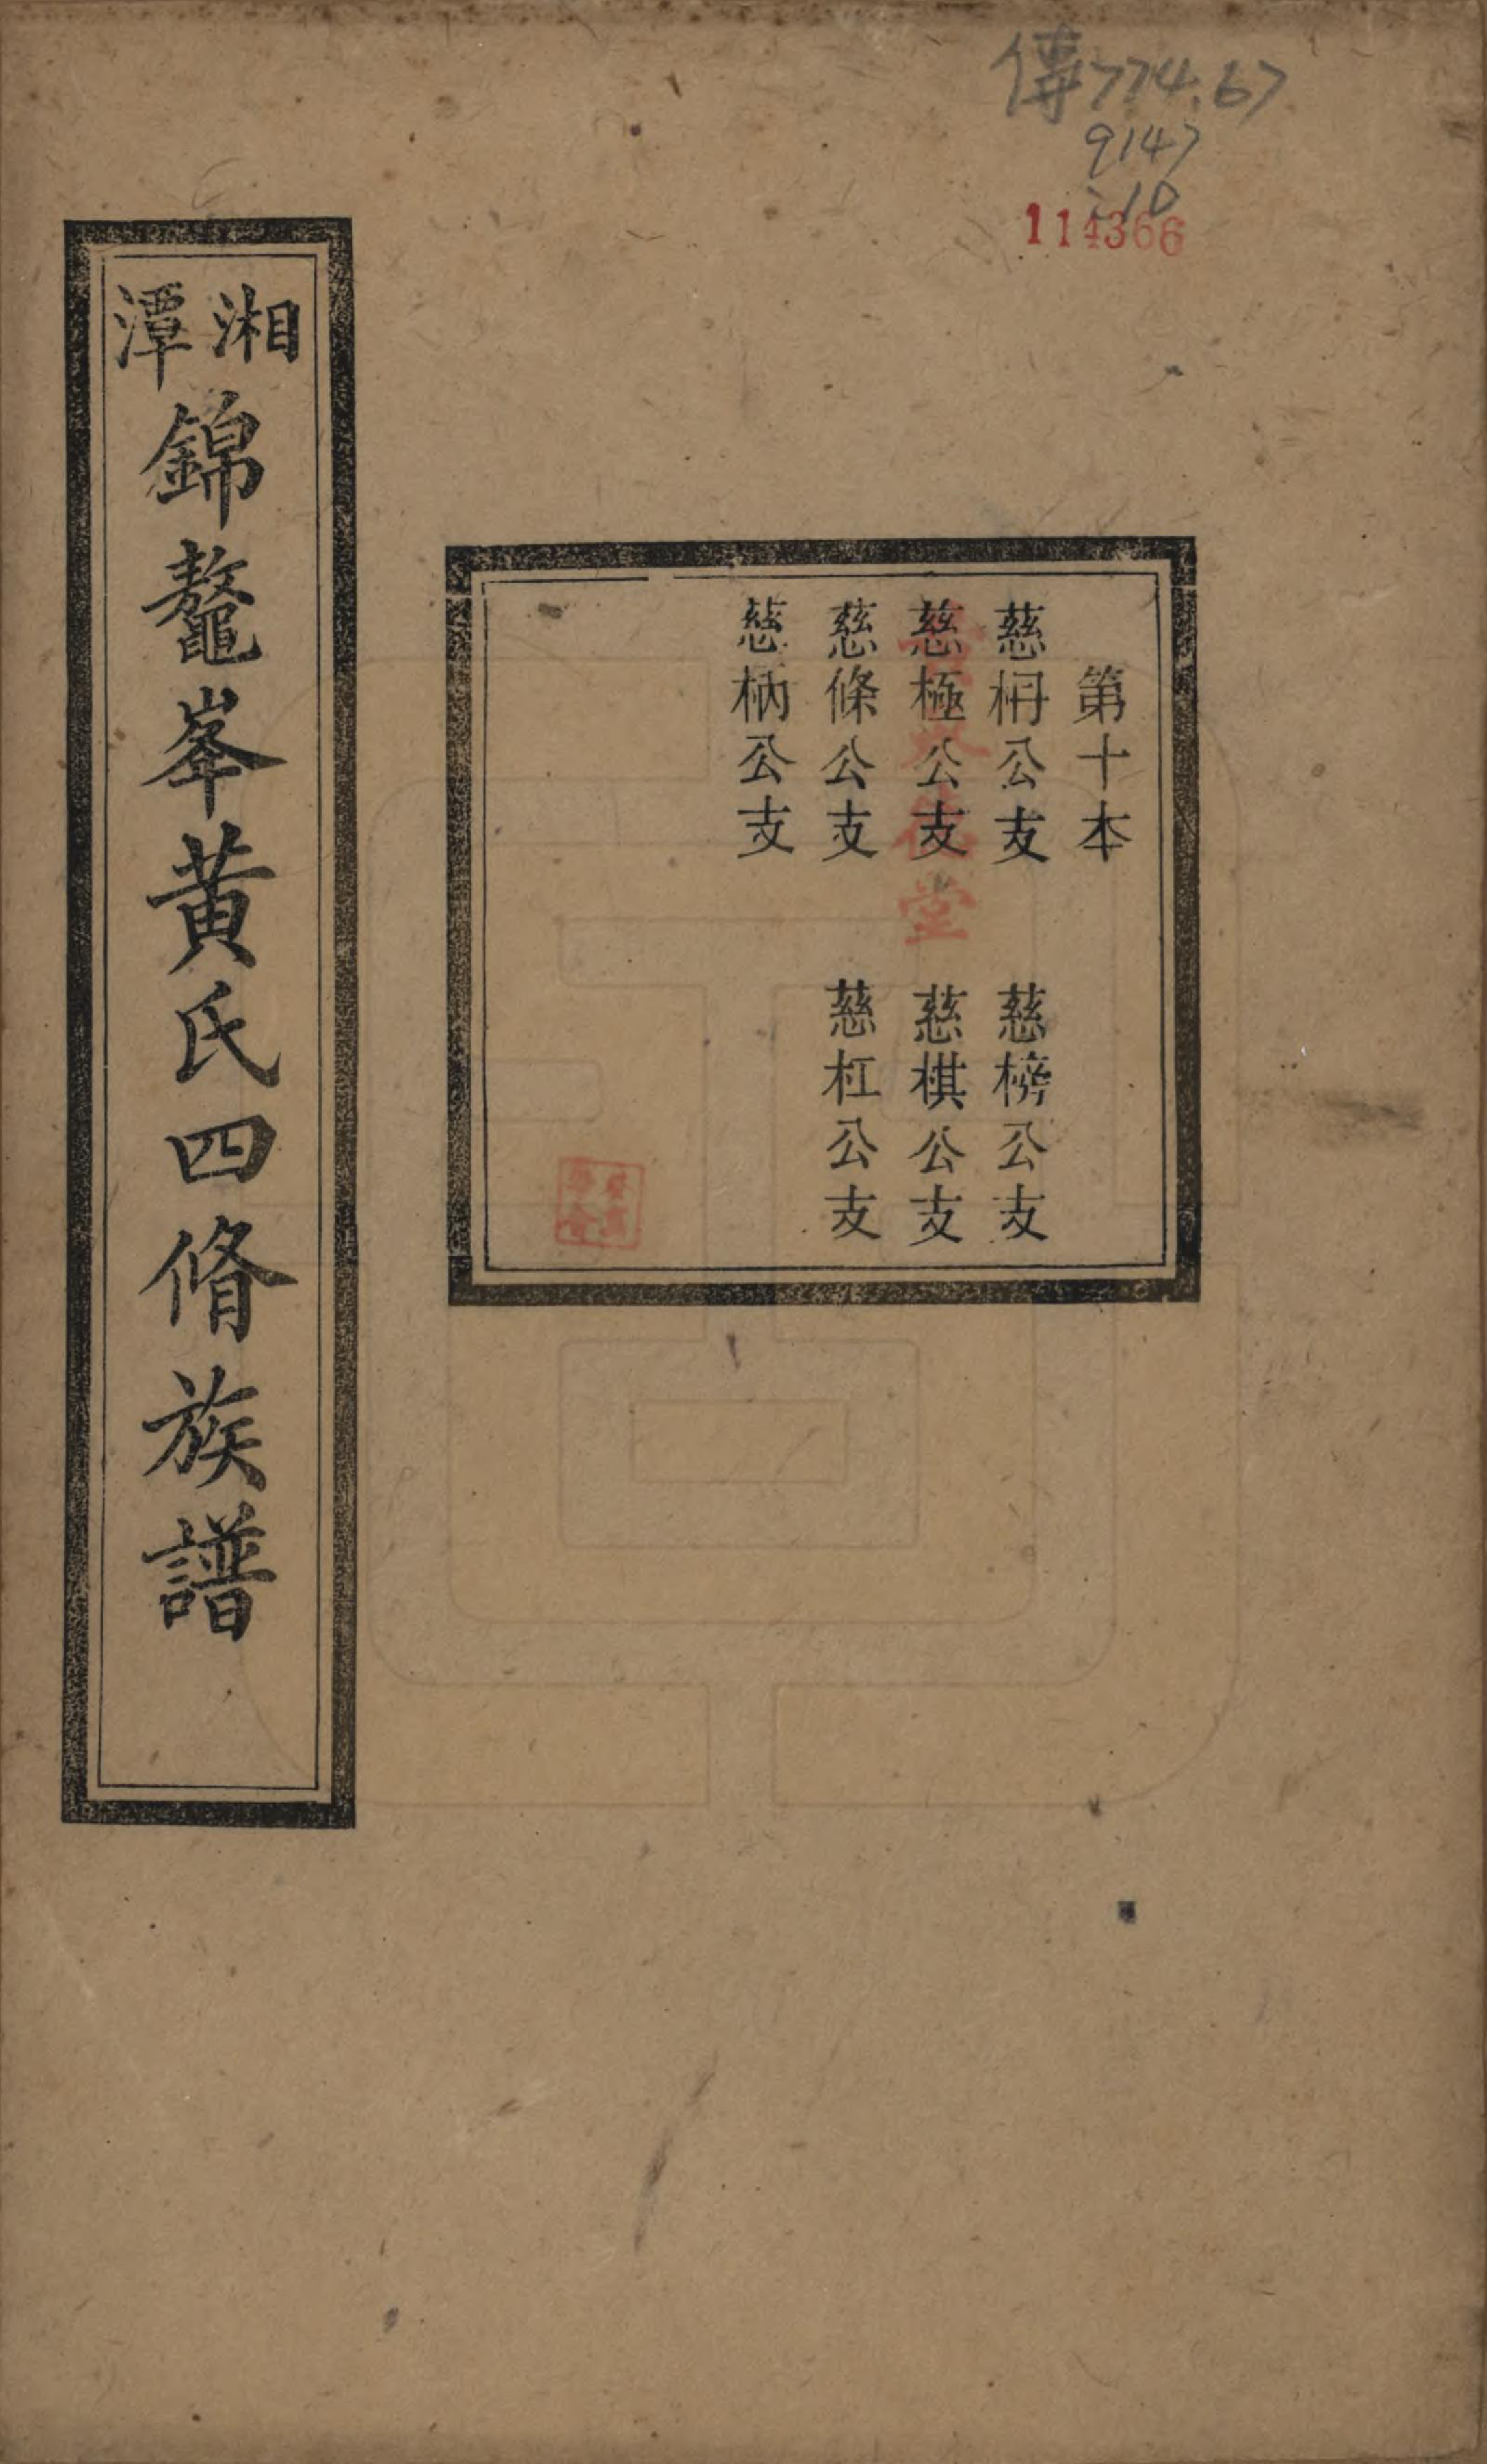 傳774.67
9147
:10
114366
第十本
慈枬公支 慈榜公支
慈極公支 慈棋公支
慈條公支 慈杠公支
慈柄公支
堂
湘潭錦鼇峯黄氏四脩族譜